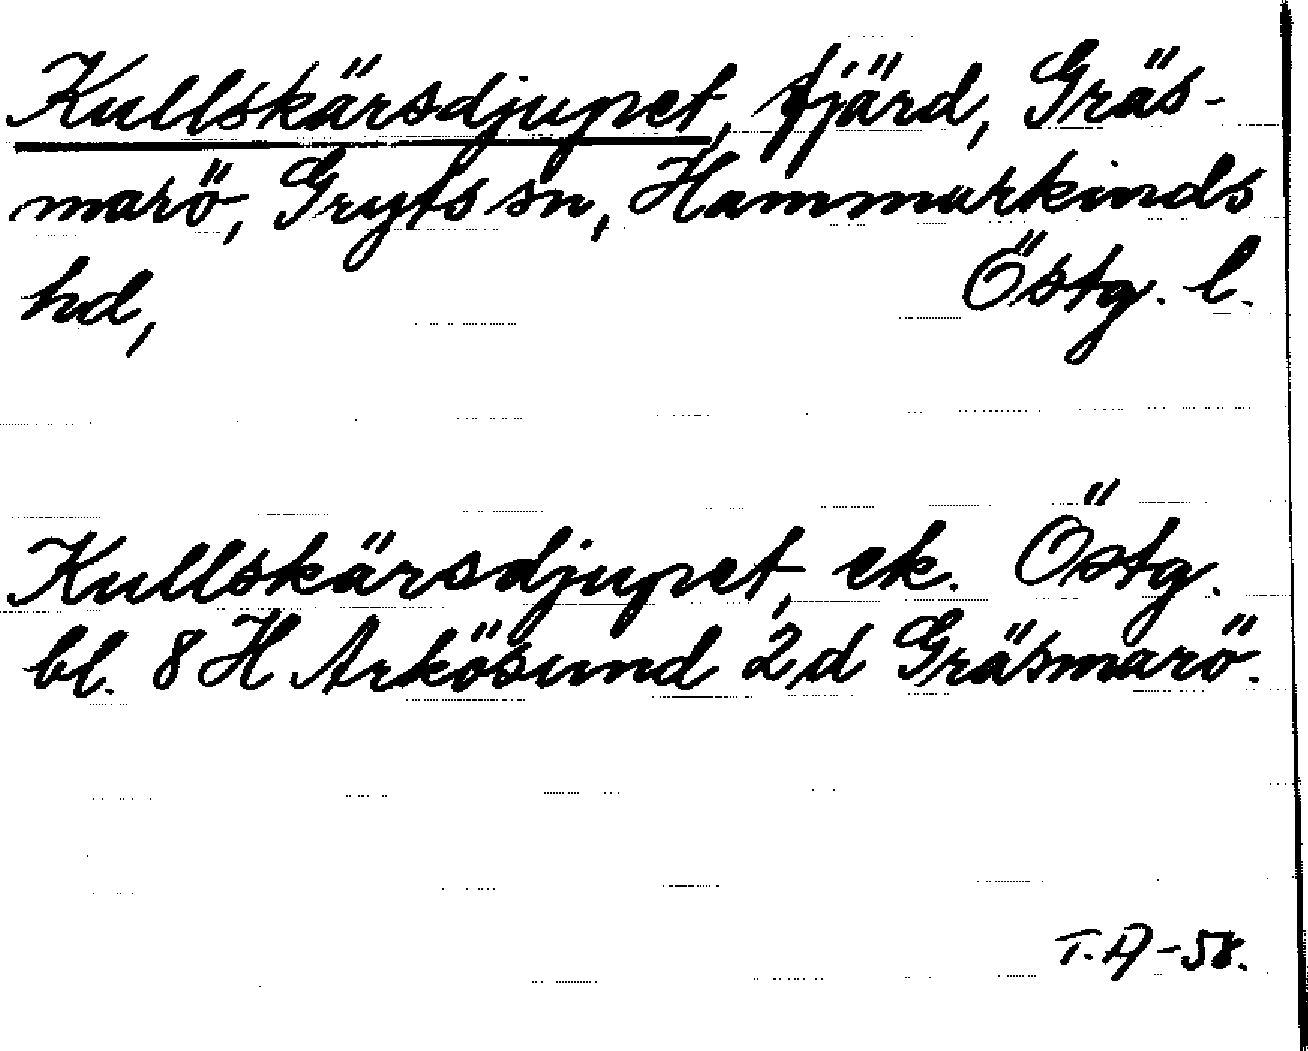 Kullskärsdjupet, fjärd, Gräs-
marö, Gryts sn, Hammarkinds
hd, Östg. l.
Kullskärsdjupet, ek. Östg.
bl. 8 H Arkösund 2 d Gräsmarö.
T. A -58.